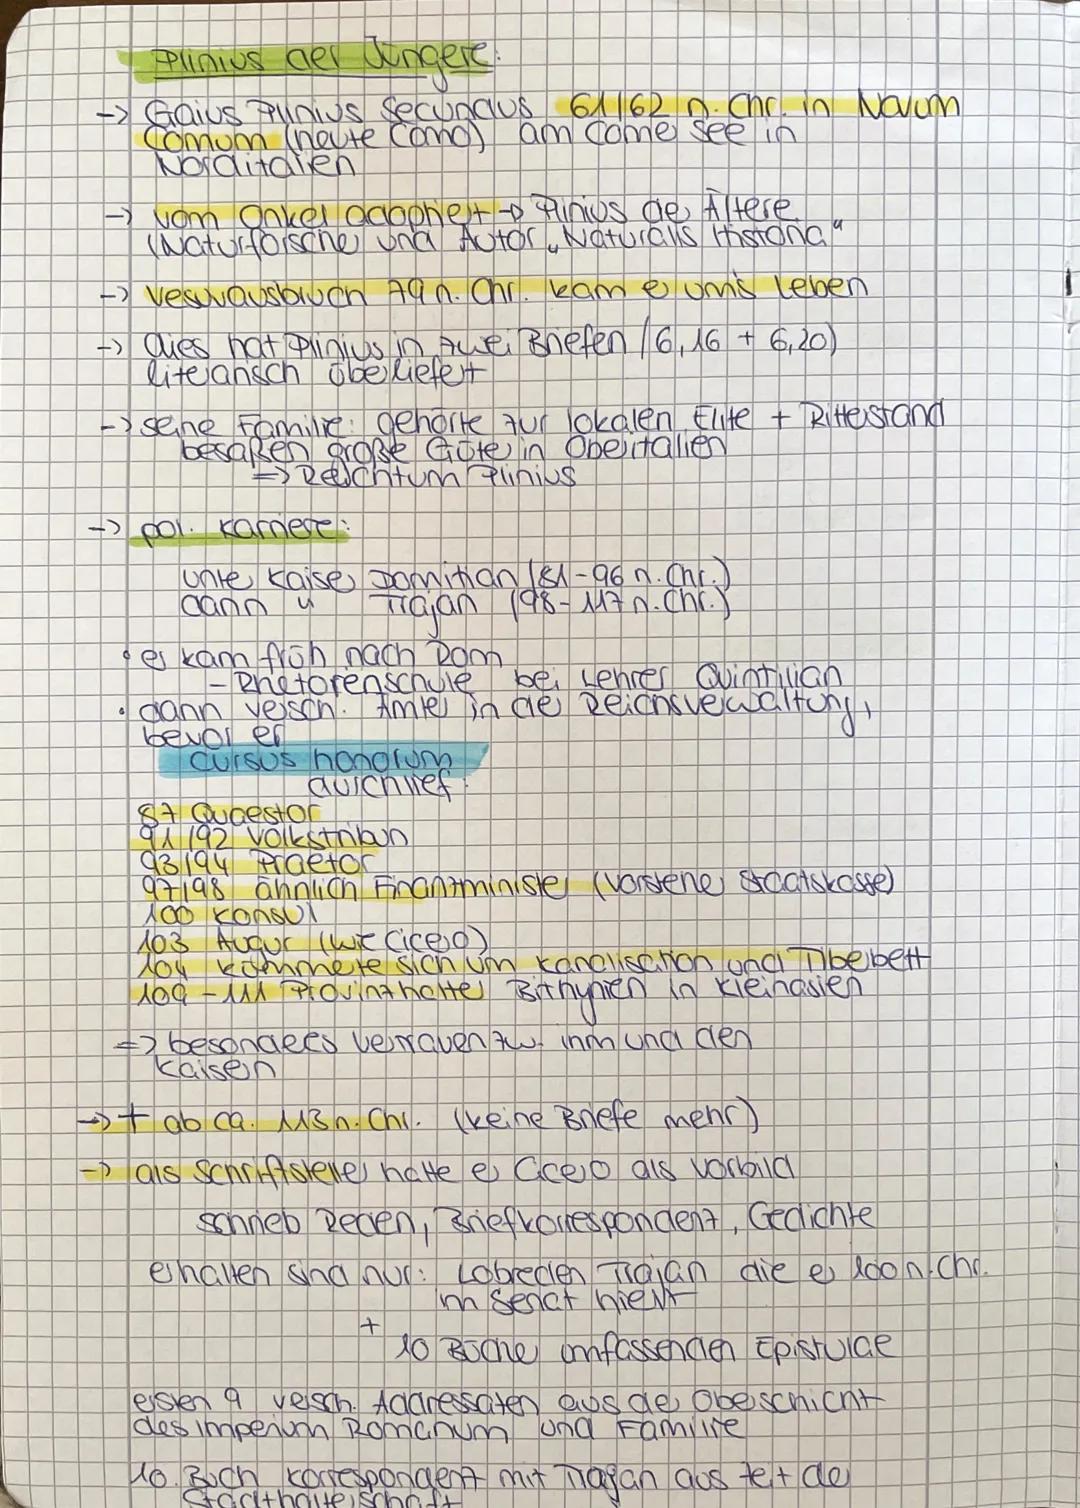 Plinius der Jüngere:
-> Gaius Plinius Secundus 61/62 n. Chr. in Novum
Comum (heute Como) am Comer See in
Norditalien
-> vom Onkel adoptiert -> Plinius der Ältere
(Naturforscher und Autor „Naturalis Historia"
-> Vesuvausbruch 79 n. Chr. kam er ums Leben
-> dies hat Plinius in zwei Briefen (6,16 + 6,20)
literarisch überliefert
-> seine Familie: gehörte zur lokalen Elite + Ritterstand
besaßen große Güter in Oberitalien
=> Reichtum Plinius
-> pol. Karriere:
unter Kaiser Domitian (81-96 n. Chr.)
dann " Trajan (98-117 n. Chr.)
• er kam früh nach Rom
- Rhetorenschule bei Lehrer Quintilian
• dann versch. Ämter in der Reichsverwaltung,
bevor er
cursus honorum
durchlief:
87 Quaestor
91/92 Volkstribun
93/94 Praetor
97/98 ähnlich Finanzminister (Vorsteher Staatskasse)
100 Konsul
103 Augur (wie Cicero)
104 kümmerte sich um Kanalisation und Tiberbett
109-111 Provinzhalter Bithynien in Kleinasien
=> besonderes Vertrauen zw. ihm und den
Kaisern
-> † ab ca. 113 n. Chr. (keine Briefe mehr)
-> als Schriftsteller hatte er Cicero als Vorbild
schrieb Reden, Briefkorrespondenz, Gedichte
erhalten sind nur: Lobreden Trajan die er 100 n. Chr.
im Senat hielt
+
10 Bücher umfassenden Epistulae
ersten 9 versch. Addressaten aus der Oberschicht
des Imperium Romanum und Familie
10. Buch Korrespondenz mit Trajan aus Zeit der
Statthalterschaft